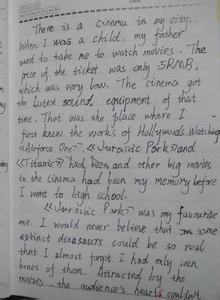 There is a cinema in my city.
When I was a child, my father
used to take me to watch movies. The
price of the ticket was only 5RMB,
which was very low. The cinema got
the lastest sound equipment of that
time. That was the place where I
first knew the works of Hollywods. Watching
《Airforce One》, 《Jurasivc Park》and
《Titanic》 had been and other big movies
in the cinema had been my memory before
I went to high school.
《Jurasivc Park》 was my favourite
one. I would never believe that some
extinct dinasaurs could be so real
that I almost forgot I had only seen
bones of them. Attracted by the
movies, the audience's hearts couldn't